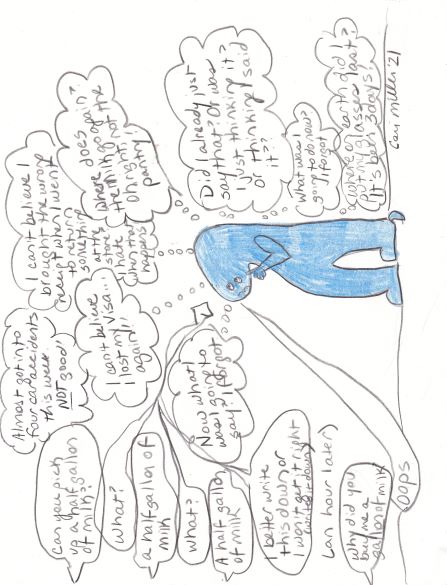 Can you pick
up a half gallon
of milk?
what?
a half gallon of
milk
what?
A half gallon
of milk
I better write
this down or
I won't get it right
(an hour later)
why did you
buy me a
gallon of milk
oops
Almost got into
four car accidents
this week
NOT good!
I can't believe
I lost my visa...
again!
Now what
was I going to
say? I forgot
I can't believe I
brought the wrong
receipt when I went
to return
something
at the
store
I hate
when that
happens
where does
the milk go again?
Oh right, not the
pantry!
Did I already just
say that? Or was
I just thinking it?
Or thinking I said
it??
What was I
going to do now?
I forgot
where on earth did I
put my glasses last?
It's been 3 days!